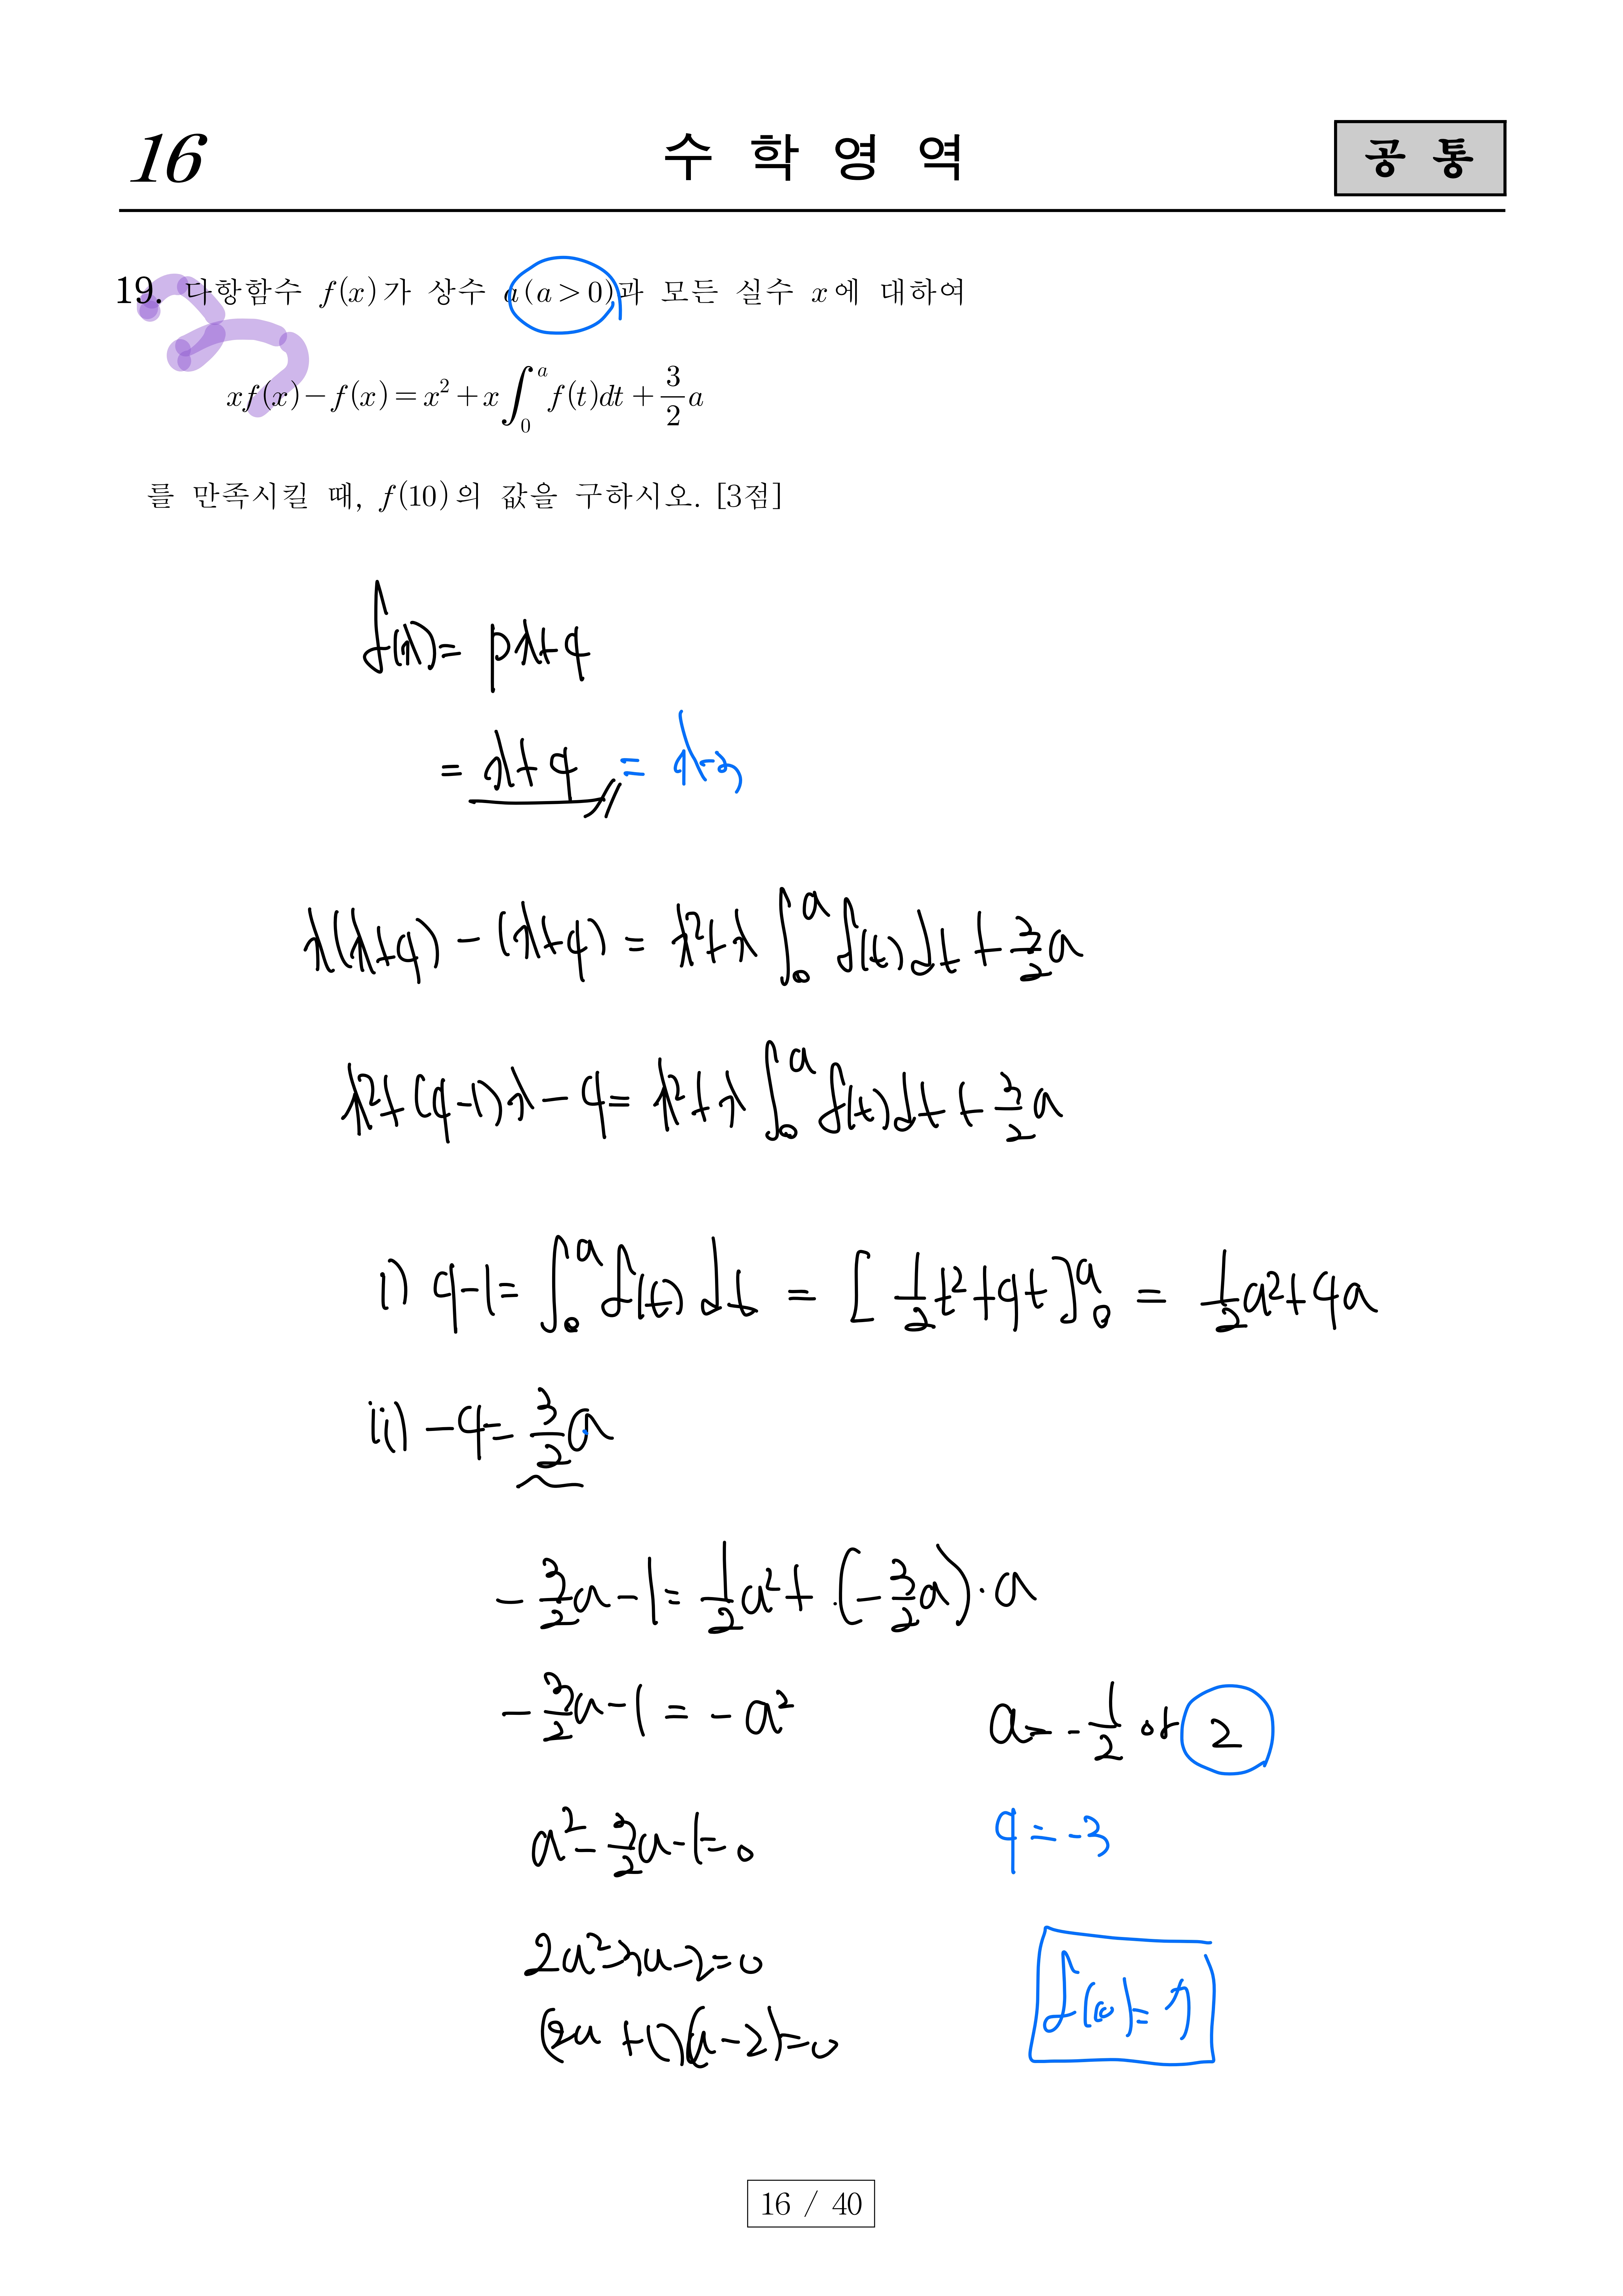 16 수 학 영 역 공 통
19. 다항함수 f(x)가 상수 a(a>0)과 모든 실수 x에 대하여
xf(x)-f(x)=x²+x∫₀ᵃ f(t)dt+3/2 a
를 만족시킬 때, f(10)의 값을 구하시오. [3점]
f(x)= px+q
= x+q = x-3
x(x+q) - (x+q) = x²+x∫₀ᵃ f(t)dt + 3/2 a
x²+(q-1)x-q = x²+x∫₀ᵃ f(t)dt + 3/2 a
i) q-1= ∫₀ᵃ f(t)dt = [1/2 t²+qt]₀ᵃ = 1/2 a²+qa
ii) -q= 3/2 a
-3/2 a-1= 1/2 a²+(-3/2 a)·a
-3/2 a-1 = -a²
a=-1/2 or 2
a²-3/2 a-1=0
q=-3
2a²-3a-2=0
(2a+1)(a-2)=0
f(10)=7
16 / 40